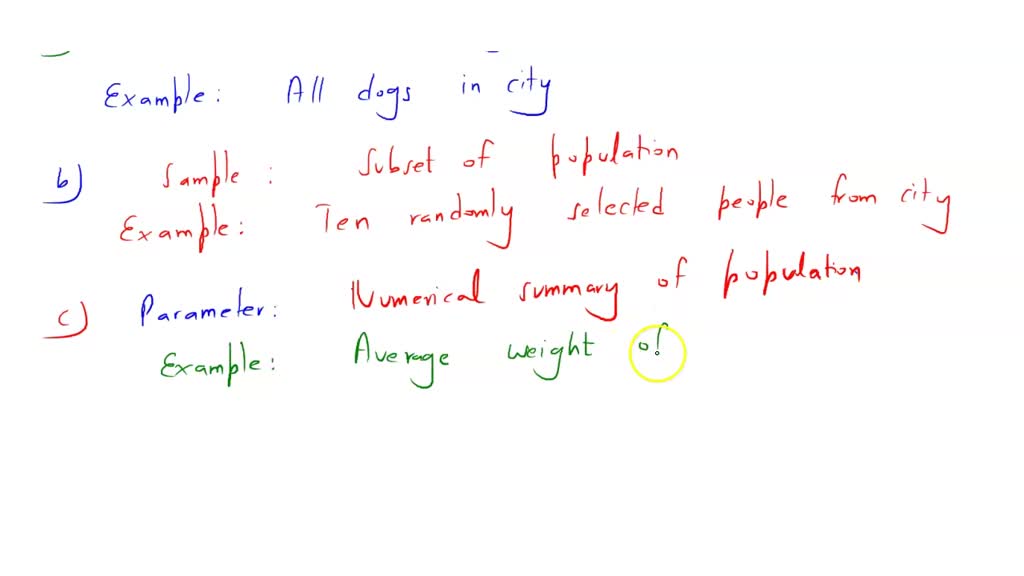 Example: All dogs in city
b) Sample: Subset of population
Example: Ten randomly selected people from city
c) Parameter: Numerical summary of population
Example: Average weight of